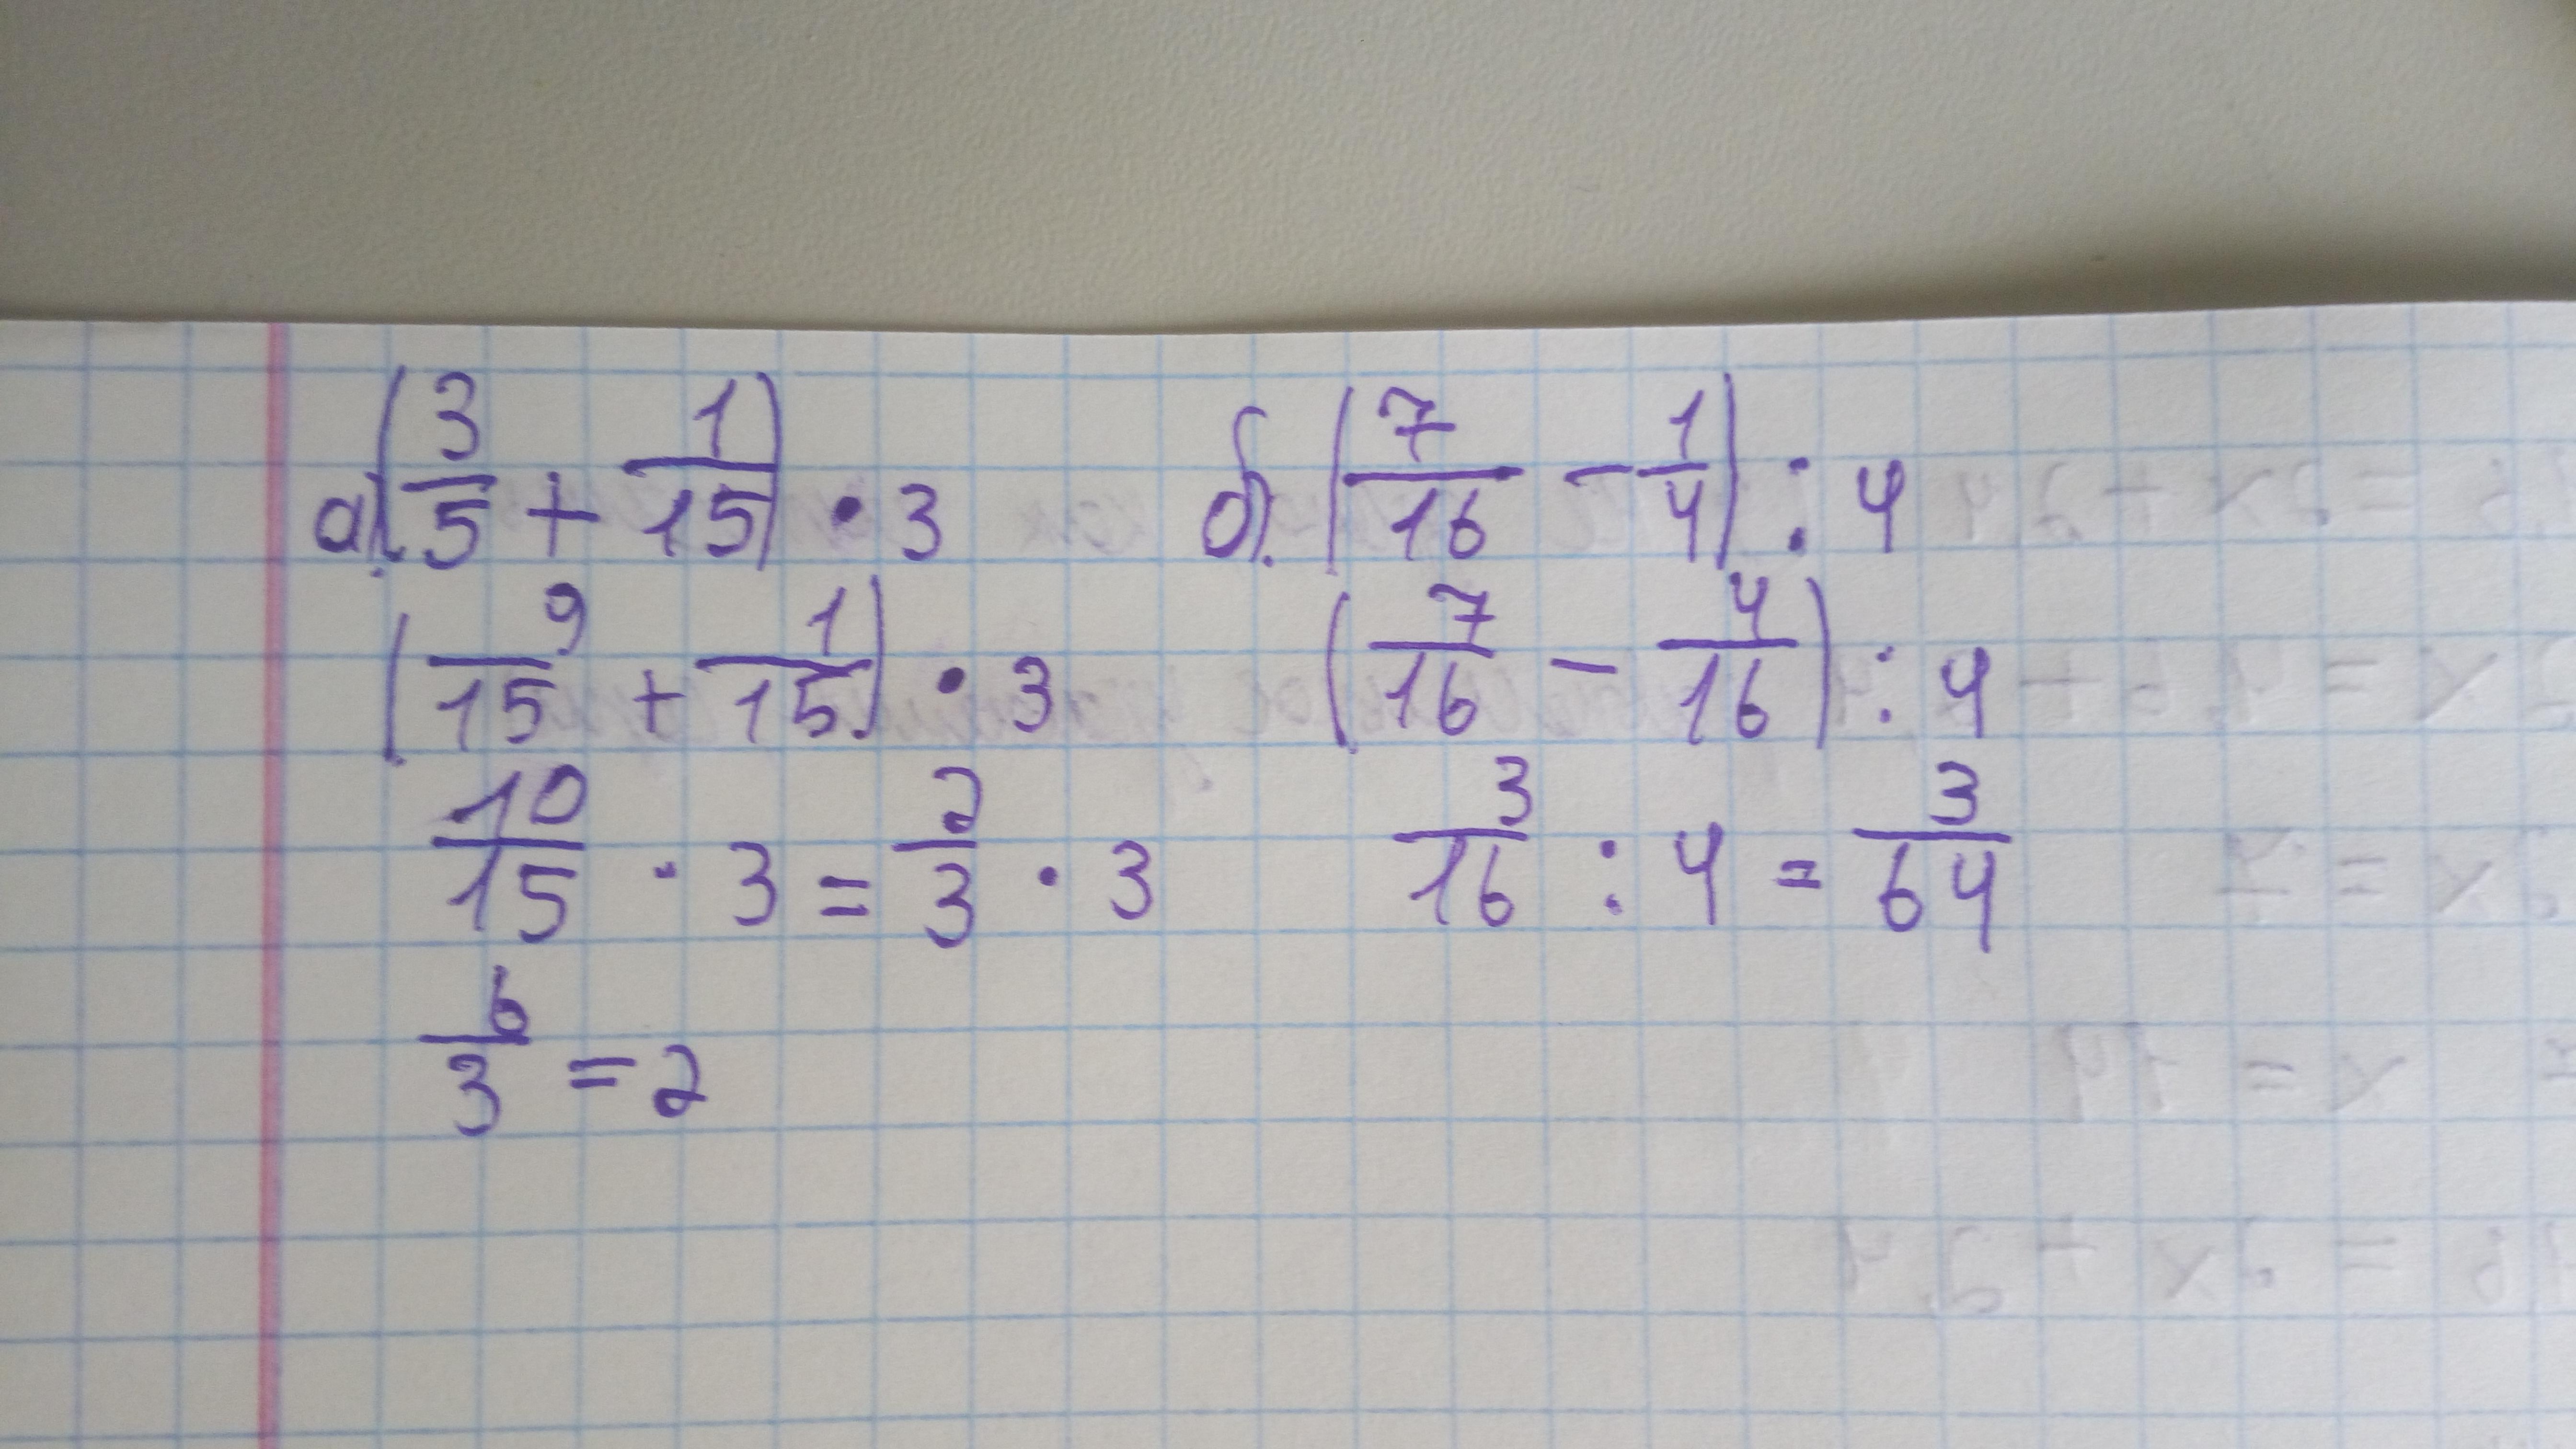 а) (3/5 + 1/15) • 3
(9/15 + 1/15) • 3
10/15 · 3 = 2/3 · 3
6/3 = 2
б). (7/16 - 1/4) : 4
(7/16 - 4/16) : 4
3/16 : 4 = 3/64